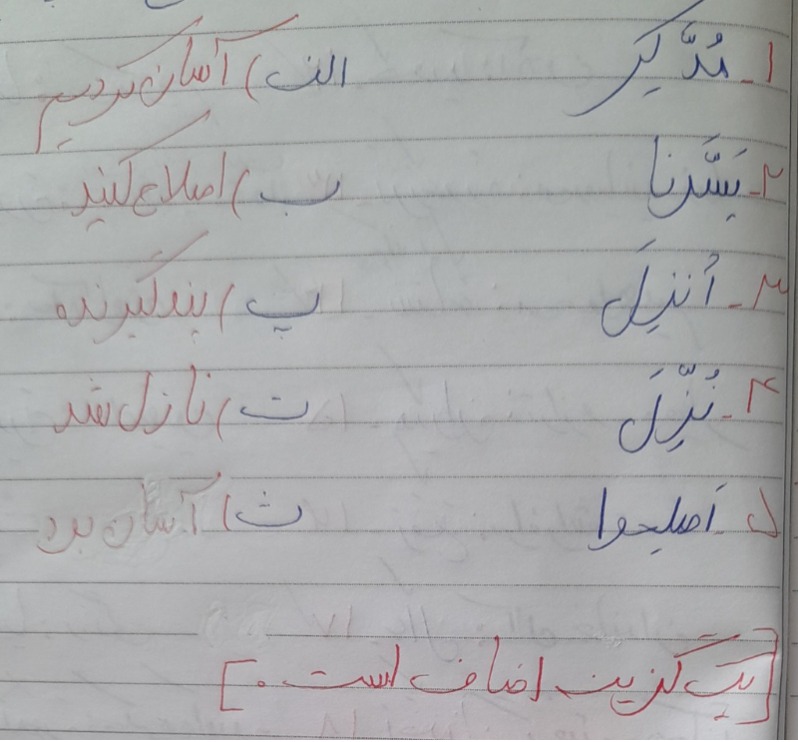 ۱- مُدَّکِر الف) آسان کردیم
۲- یَسَّرنا ب) اصلاح کنید
۳- اُنزِلَ پ) پندگیرنده
۴- نُزِّلَ ت) نازل شد
۵- اَصلِحوا ث) آسان برد
[یک گزینه اضاف است.]